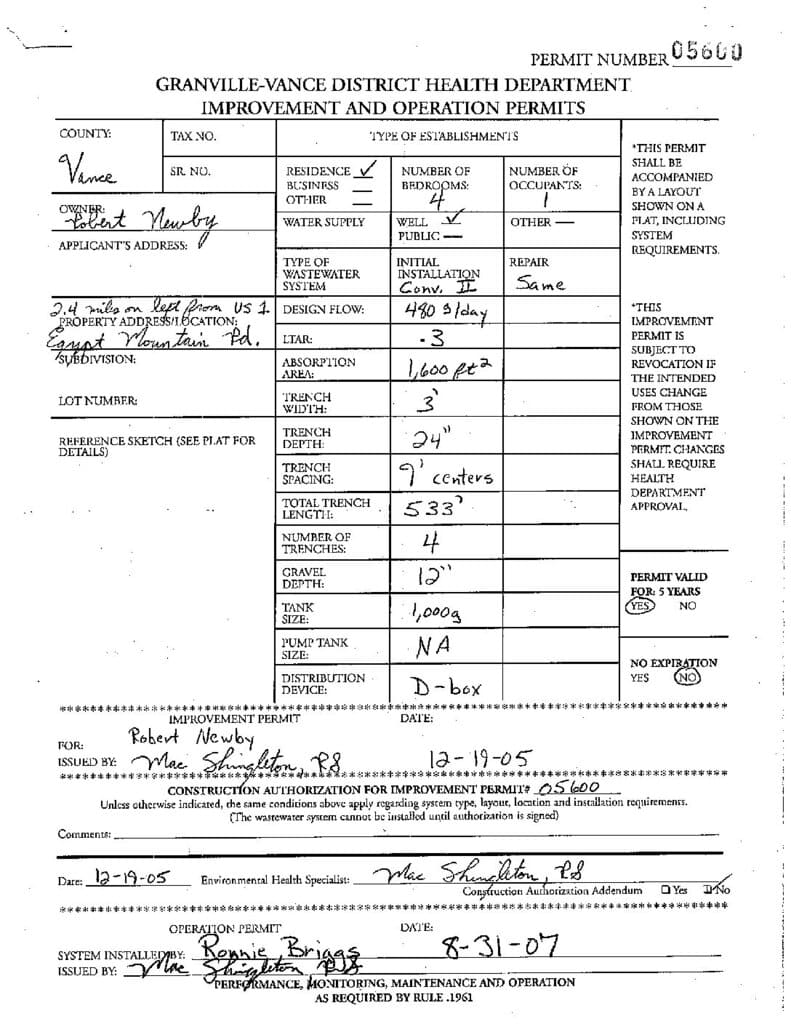 PERMIT NUMBER 05600
GRANVILLE-VANCE DISTRICT HEALTH DEPARTMENT
IMPROVEMENT AND OPERATION PERMITS
COUNTY:
Vance
TAX NO.
SR. NO.
TYPE OF ESTABLISHMENTS
RESIDENCE ✓
BUSINESS __
OTHER __
NUMBER OF
BEDROOMS:
4
NUMBER OF
OCCUPANTS:
1
OWNER:
Robert Newby
APPLICANT'S ADDRESS:
WATER SUPPLY
WELL ✓
PUBLIC —
OTHER —
TYPE OF
WASTEWATER
SYSTEM
INITIAL
INSTALLATION
Conv. II
REPAIR
Same
2.4 miles on left from US 1
PROPERTY ADDRESS/LOCATION:
Egypt Mountain Rd.
SUBDIVISION:
LOT NUMBER:
REFERENCE SKETCH (SEE PLAT FOR
DETAILS)
DESIGN FLOW: 480 g/day
LTAR: .3
ABSORPTION
AREA: 1,600 ft²
TRENCH
WIDTH: 3'
TRENCH
DEPTH: 24"
TRENCH
SPACING: 9' centers
TOTAL TRENCH
LENGTH: 533'
NUMBER OF
TRENCHES: 4
GRAVEL
DEPTH: 12"
TANK
SIZE: 1,000g
PUMP TANK
SIZE: NA
DISTRIBUTION
DEVICE: D-box
*THIS PERMIT
SHALL BE
ACCOMPANIED
BY A LAYOUT
SHOWN ON A
PLAT, INCLUDING
SYSTEM
REQUIREMENTS.
*THIS
IMPROVEMENT
PERMIT IS
SUBJECT TO
REVOCATION IF
THE INTENDED
USES CHANGE
FROM THOSE
SHOWN ON THE
IMPROVEMENT
PERMIT. CHANGES
SHALL REQUIRE
HEALTH
DEPARTMENT
APPROVAL.
PERMIT VALID
FOR: 5 YEARS
YES NO
NO EXPIRATION
YES NO
IMPROVEMENT PERMIT DATE:
FOR: Robert Newby
ISSUED BY: Mac Shingleton, RS 12-19-05
CONSTRUCTION AUTHORIZATION FOR IMPROVEMENT PERMIT# 05600
Unless otherwise indicated, the same conditions above apply regarding system type, layout, location and installation requirements.
(The wastewater system cannot be installed until authorization is signed)
Comments:
Date: 12-19-05 Environmental Health Specialist: Mac Shingleton, RS
Construction Authorization Addendum ☐ Yes ☑ No
OPERATION PERMIT DATE:
SYSTEM INSTALLED BY: Ronnie Briggs 8-31-07
ISSUED BY: Mac Shingleton RS
PERFORMANCE, MONITORING, MAINTENANCE AND OPERATION
AS REQUIRED BY RULE .1961